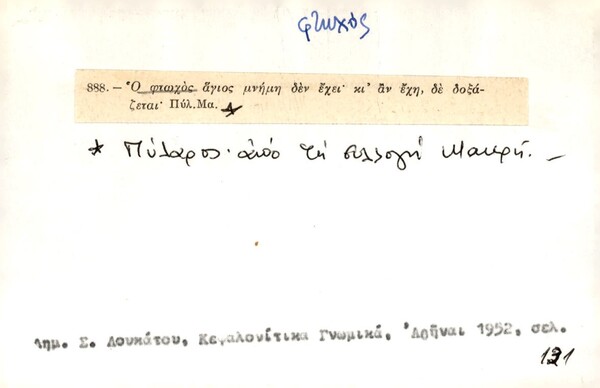 φτωχός
888. – Ὁ φτωχὸς ἅγιος μνήμη δὲν ἔχει· κι' ἂν ἔχῃ, δὲ δοξά-
ζεται· Πύλ.Μα. *
* Πύλαρος· ἀπό τή συλλογή Μακρή. –
Δημ. Σ. Λουκάτου, Κεφαλονίτικα Γνωμικά, Ἀθῆναι 1952, σελ.
121